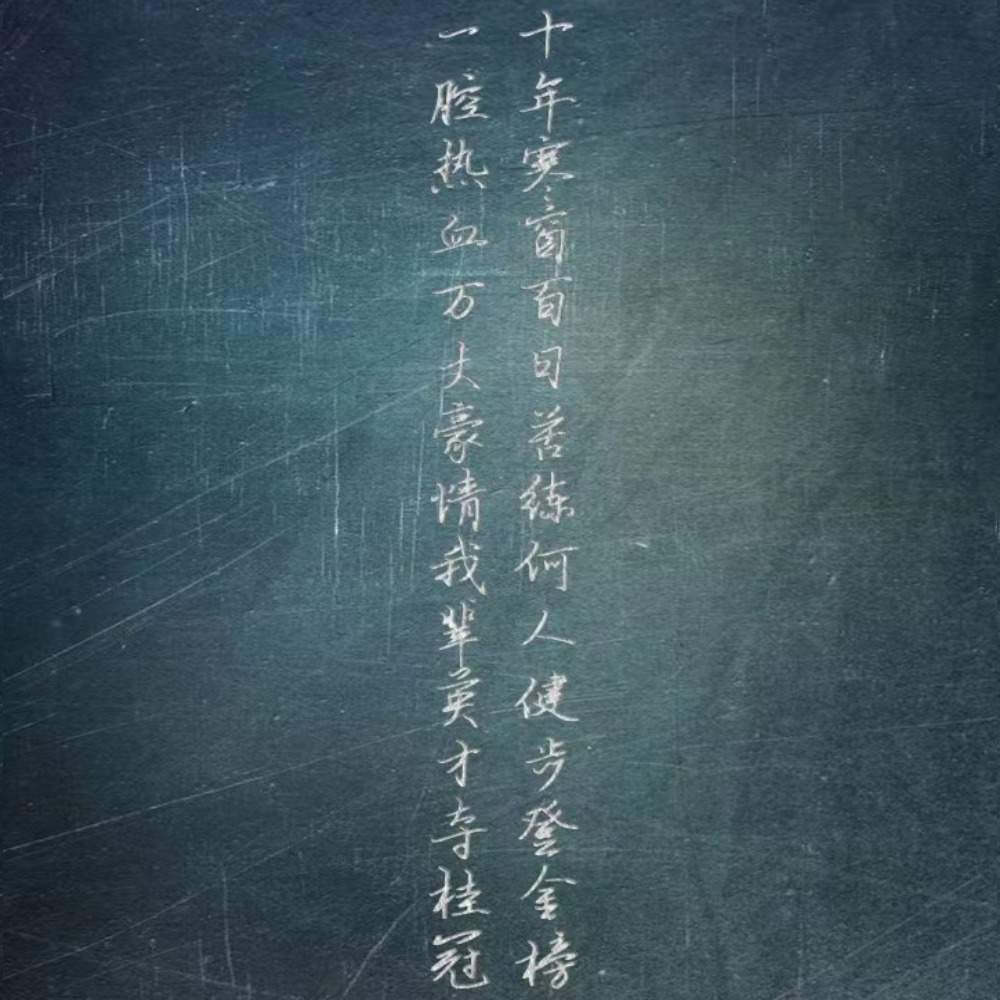 十年寒窗百日苦练何人健步登金榜
一腔热血万丈豪情我辈英才夺桂冠